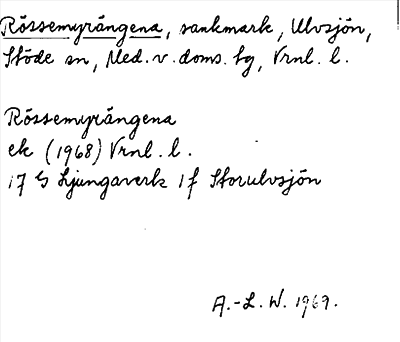 Rössemyrängena, sankmark, Ulvsjön,
Stöde sn, Med. v. doms. tg, Vrnl. l.
Rössemyrängena
ek (1968) Vrnl. l.
17 G Ljungaverk 1f Storulvsjön
A.-L. W. 1969.